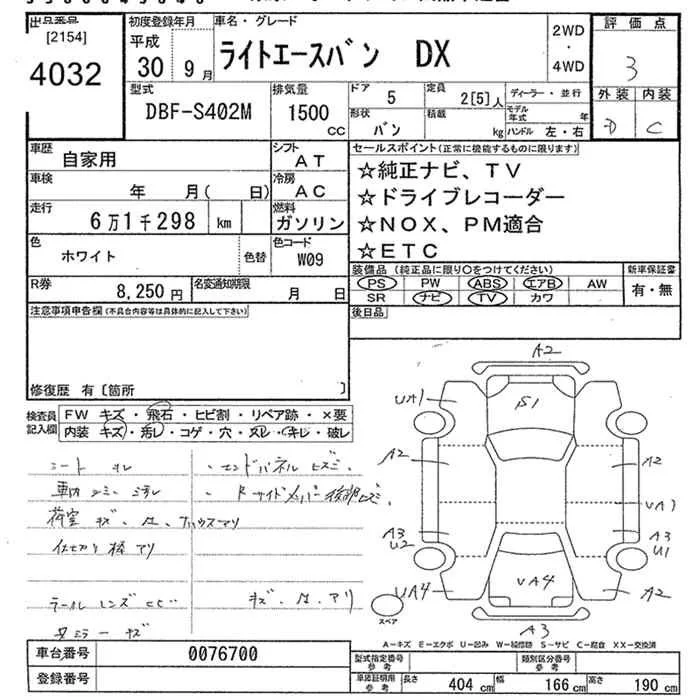 出品番号
[2154]
4032
初度登録年月
平成
30年 9月
車名・グレード
ライトエースバン DX
2WD
・
4WD
評価点
3
外装 内装
D C
型式
DBF-S402M
排気量
1500
CC
ドア
5
形状
バン
定員
2[5]人
積載
kg
ディーラー・並行
モデル年式 年
ハンドル 左・右
車歴
自家用
シフト
AT
車検
年 月( 日)
冷房
AC
走行
6万1千298 km
燃料
ガソリン
色
ホワイト
色替
色コード
W09
R券
8,250円
名変通知期限
月 日
セールスポイント(正常に機能するものに限ります)
☆純正ナビ、TV
☆ドライブレコーダー
☆NOX、PM適合
☆ETC
装備品 (純正品に限り○をつけてください)
PS PW ABS エアB AW
SR ナビ TV カワ
新車保証書
有・無
後日品
注意事項申告欄(不具合内容等は具体的に記入して下さい)
修復歴 有〔箇所 〕
検査員
記入欄
FW キズ・飛石・ヒビ割・リペア跡・×要
内装 キズ・汚レ・コゲ・穴・スレ・キレ・破レ
シート
荷室 キズ
仕切り棒 アリ
エンドパネル ヒズミ
テールレンズ ヒビ
アリ
A2
UA1
S1
A2
A2
A3
U2
UA3
A3
U1
UA4
UA4
A2
A3
スペア
A−キズ E−エクボ U−凹み W−補修跡 S−サビ C−腐食 XX−交換済
車台番号
0076700
登録番号
型式指定番号
参考
類別区分番号
参考
車庫証明用
参考
長さ 404 cm 幅 166 cm 高さ 190 cm